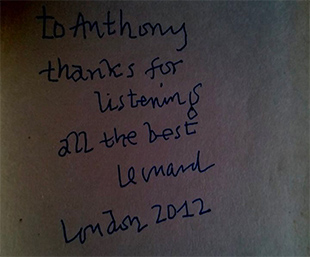 to Anthony
thanks for
listening
all the best
Leonard
London 2012